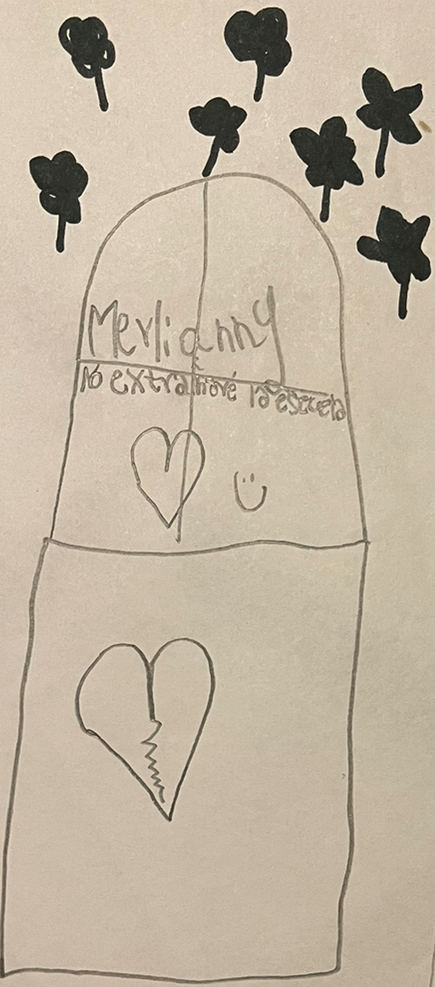 Merlianny
No extrañaré la escuela